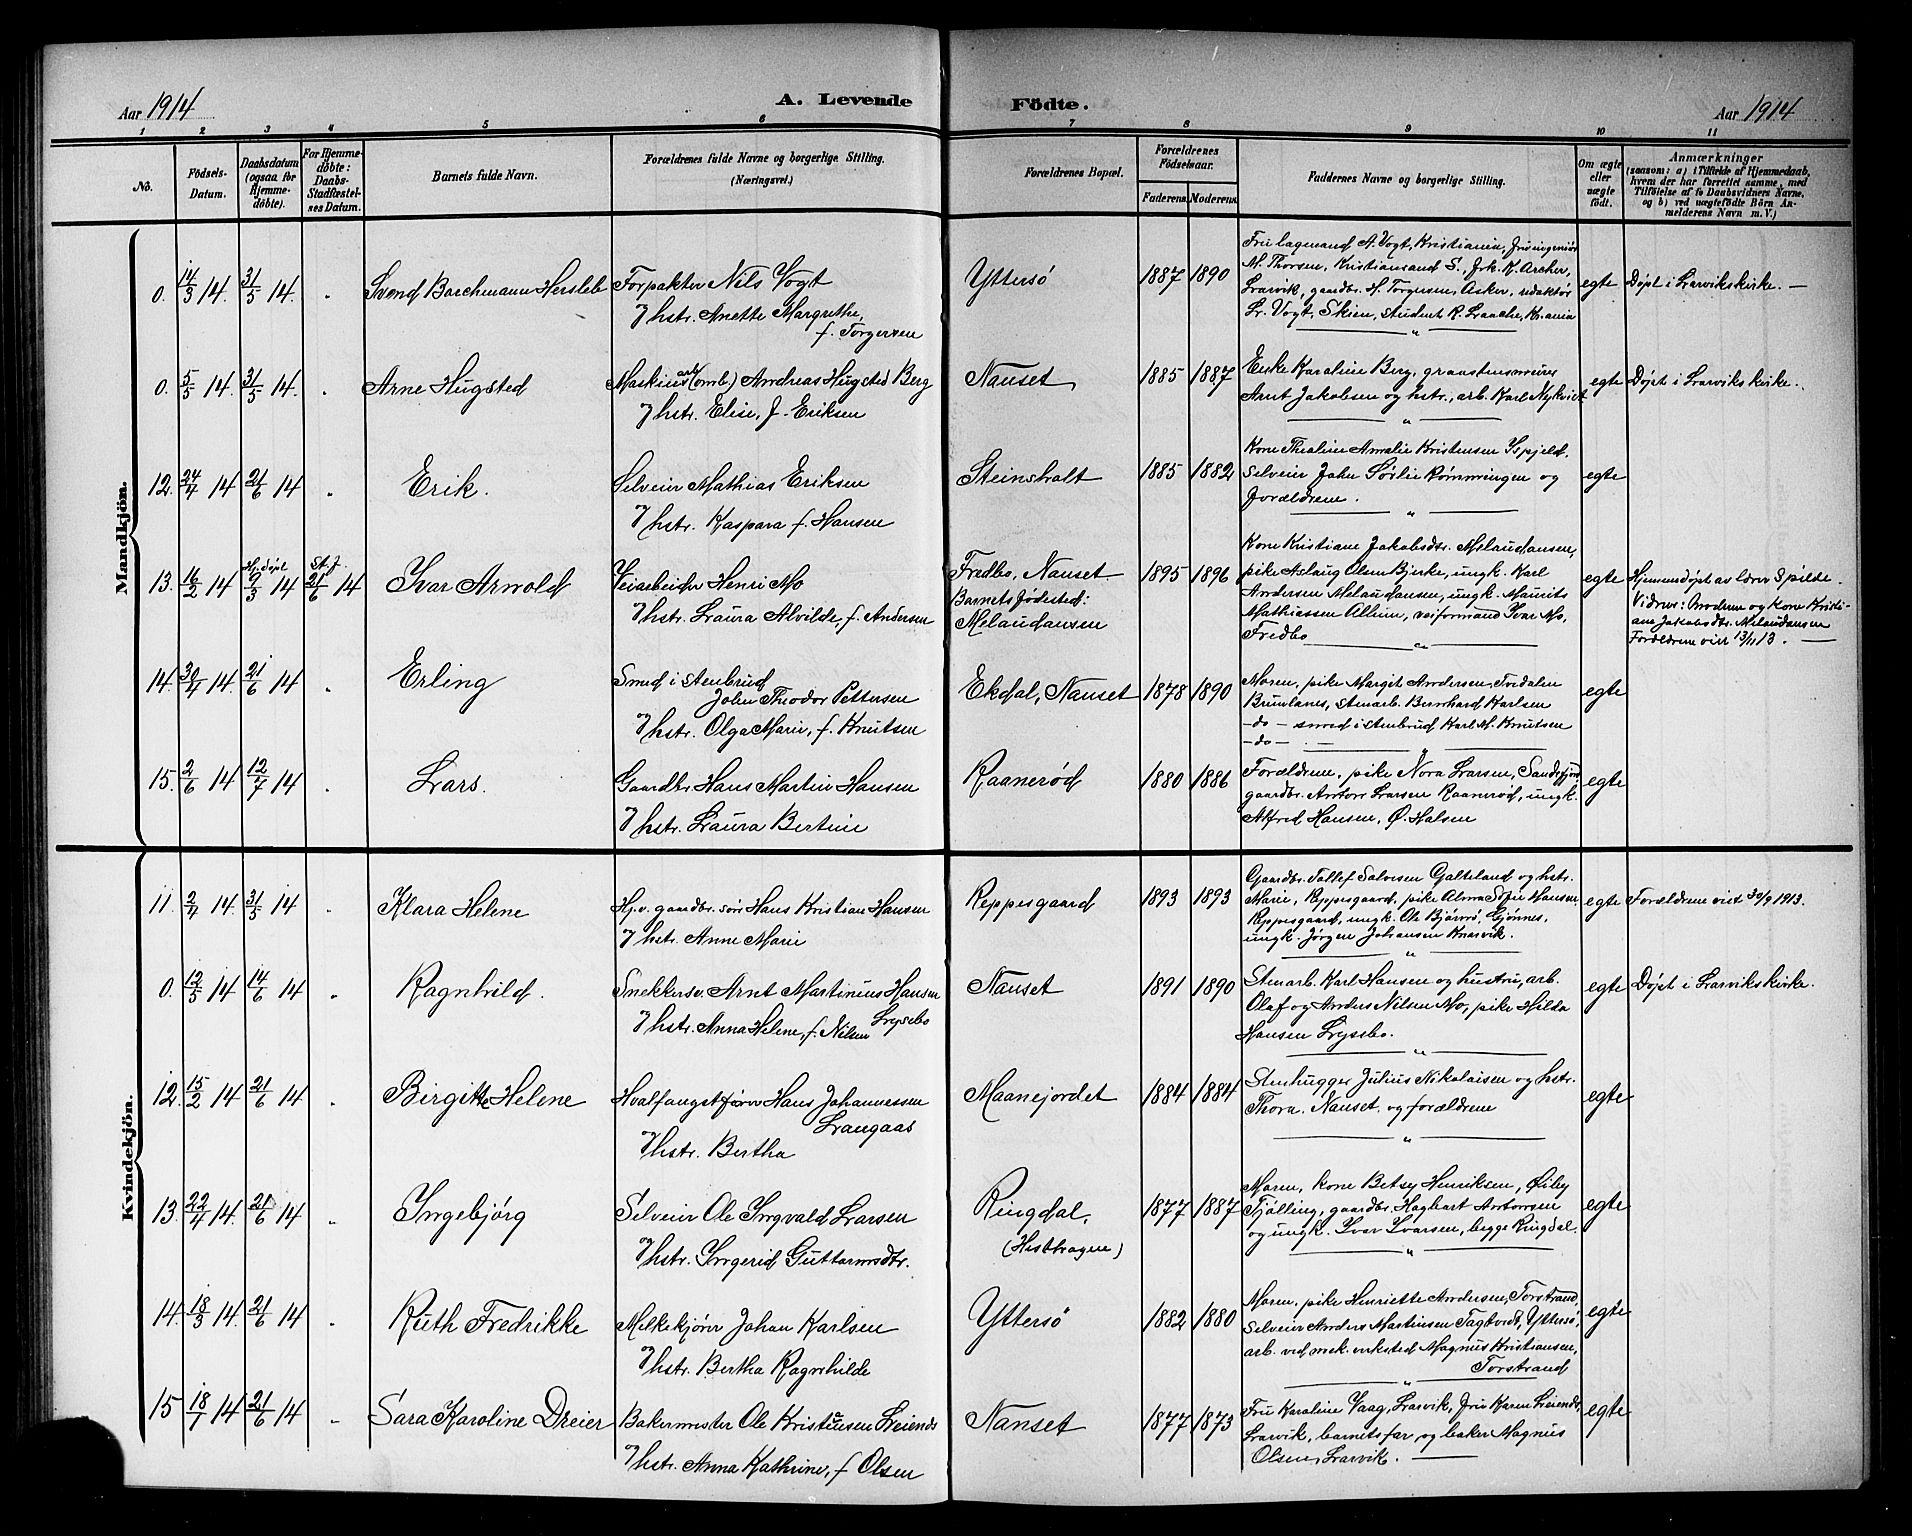 Aar 1914
A. Levende
Födte.
Aar 1914
1 2 3 4 5 6 7 8 9 10 11
No.
Födsels-
Datum.
Daabsdatum
(ogsaa for
Hjemme-
döbte).
For Hjemme-
döbte:
Daabs-
Stadfæstel-
ses Datum.
Barnets fulde Navn.
Forældrenes fulde Navne og borgerlige Stilling.
(Næringsvei.)
Forældrenes Bopæl.
Forældrenes
Födselsaar.
Faderens. Moderens.
Faddernes Navne og borgerlige Stilling.
Om ægte
eller
uægte
födt.
Anmærkninger
(saasom: a) i Tilfælde af Hjemmedaab,
hvem der har forrettet samme, med
Tilföielse af to Daabsvidners Navne,
og b) ved uægtefödte Börn An-
melderens Navn m. V.)
Mandkjön.
0. 14/3 14. 31/5 14. " Svend Barchmann Hersleb
Forpakter Nils Vogt
og hstr. Anette Margrethe,
f. Torgersen
Yttersø 1887 1890
Fru lagmand A. Vogt, Kristiania, fru ingeniør
M. Thorsen, Kristiansand S., frk. K. Archer,
Larvik, gaardbr. H. Torgersen, Asker, redaktør
L. Vogt, Skien, student R. Laache, Kr.ania
egte Døpt i Larviks kirke. —
0. 5/5 14. 31/5 14. " Arne Hugsted
Maskinarb. (omb.) Andreas Hugsted Berg
og hstr. Elise, f. Eriksen
Nanset 1885 1887
Enke Karoline Berg, graastensmurer
Arnt Jakobsen og hstr., arb. Karl Nykvist
egte Døpt i Larviks kirke.
12. 24/4 14 21/6 14 " Erik.
Selveier Mathias Eriksen
og hstr. Kaspara f. Hansen
Steinsholt 1885 1882
Kone Thealine Amalie Kristensen Ispjeld.
Selveier John Sørlie Rømmingen og
Forældrene.
egte
13. 16/2 14 Hj. døpt 9/3 14 St. f. 21/6 14 Ivar Arnold
Veiarbeider Henri Mo
og hstr. Laura Alvilde, f. Andersen
Fredbo, Nanset
Barnets fødested:
Melaudansen
1895 1896
Kone Kristiane Jakobsdtr. Melaudansen,
pike Aslaug Olsen Bjerke, ungk. Karl
Andersen Melaudansen, ungk. Maurits
Mathiassen Allum, veiformand Ivar Mo,
Fredbo
egte
Hjemmedøpt av lærer Spilde.
Vidner: Moderen og kone Kristi-
ane Jakobsdtr. Melaudansen
Forældrene viet 13/11 13. —
14. 30/4 14. 21/6 14 " Erling
Smed i stenbrud
John Theodor Pettersen
og hstr. Olga Marie, f. Knutsen
Ekdal, Nanset 1878 1890
Moren, pike Margit Andersen, Tvedalen
Brunlanes, stenarb. Bernhard Karlsen
— do — smed i stenbrud Karl M. Knutsen
— do — . —
egte
15. 2/6 14 12/7 14 " Lars.
Gaardbr. Hans Martin Hansen
og hstr. Laura Bertine
Raanerød 1880 1886
Forældrene, pike Nora Larsen, Sandefjord
gaardbr. Anton Larsen Raanerød, ungk.
Alfred Hansen, Ø. Halsen
egte
Kvindekjön.
11. 2/4 14. 31/5 14 " Klara Helene
Hj.v. gaardbr. søn Hans Kristian Hansen
og hstr. Anne Marie
Reppesgaard 1893 1893
Gaardbr. Tollef Salvesen Galteland og hstr.
Marie, Reppesgaard, pike Alma Sofie Hansen
Reppesgaard, ungk. Ole Bjørnø, Gjønnes,
ungk. Jørgen Johansen Knarvik.
egte Forældrene viet 30/9 1913.
0. 12/5 14 14/6 14 " Ragnhild.
Snekkersv. Arnt Martinius Hansen
Lysebo
og hstr. Anna Helene, f. Nilsen
Nanset 1891 1890
Stenarb. Karl Hansen og hustru, arb.
Olaf og Anders Nilsen Mo, pike Hilda
Hansen Lysebo.
egte Døpt i Larviks kirke.
12. 15/2 14 21/6 14 " Birgitte Helene
Hvalfangstfører Hans Johannessen
Langaas
og hstr. Bertha
Maanejordet 1884 1884
Stenhugger Julius Nikolaisen og hstr.
Thora. Nanset. og forældrene
egte
13. 22/4 14. 21/6 14 " Ingebjørg
Selveier Ole Ingvald Larsen
og hstr. Ingerid Guttormsdtr.
Ringdal,
1877 1887
Moren, kone Betsy Henriksen, Øiby
Tjølling, gaardbr. Hagbart Antonsen
og ungk. Ivar Ivarsen, begge Ringdal.
egte
14. 18/3 14. 21/6 14 " Ruth Fredrikke
Melkekjører Johan Karlsen
og hstr. Bertha Ragnhilde
Yttersø 1882 1880
Moren, pike Henriette Andersen, Torstrand,
Selveier Anders Martinsen Tagtvedt, Yttersø,
arb. ved mek. verksted Magnus Kristiansen,
Torstrand
egte
15 18/1 14 21/6 14 " Sara Karoline Dreier
Bakermester Ole Kristiansen Leiends
og hstr. Anna Kathrine, f. Olsen
Nanset 1877 1873
Fru Karoline Vaag, Larvik, fru Karen Leiends,
Larvik, barnets far og baker Magnus
Olsen, Larvik. —
egte